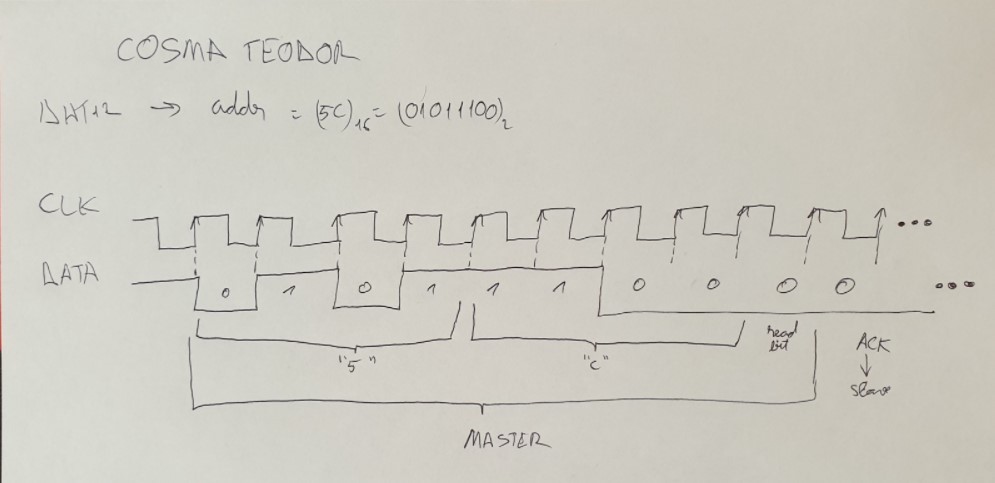 COSMA TEODOR
DHT12 → addr = (5C)₁₆ = (01011100)₂
CLK ...
DATA 0 1 0 1 1 1 0 0 0 0 ...
"5" "C" read bit ACK
↓
slave
MASTER